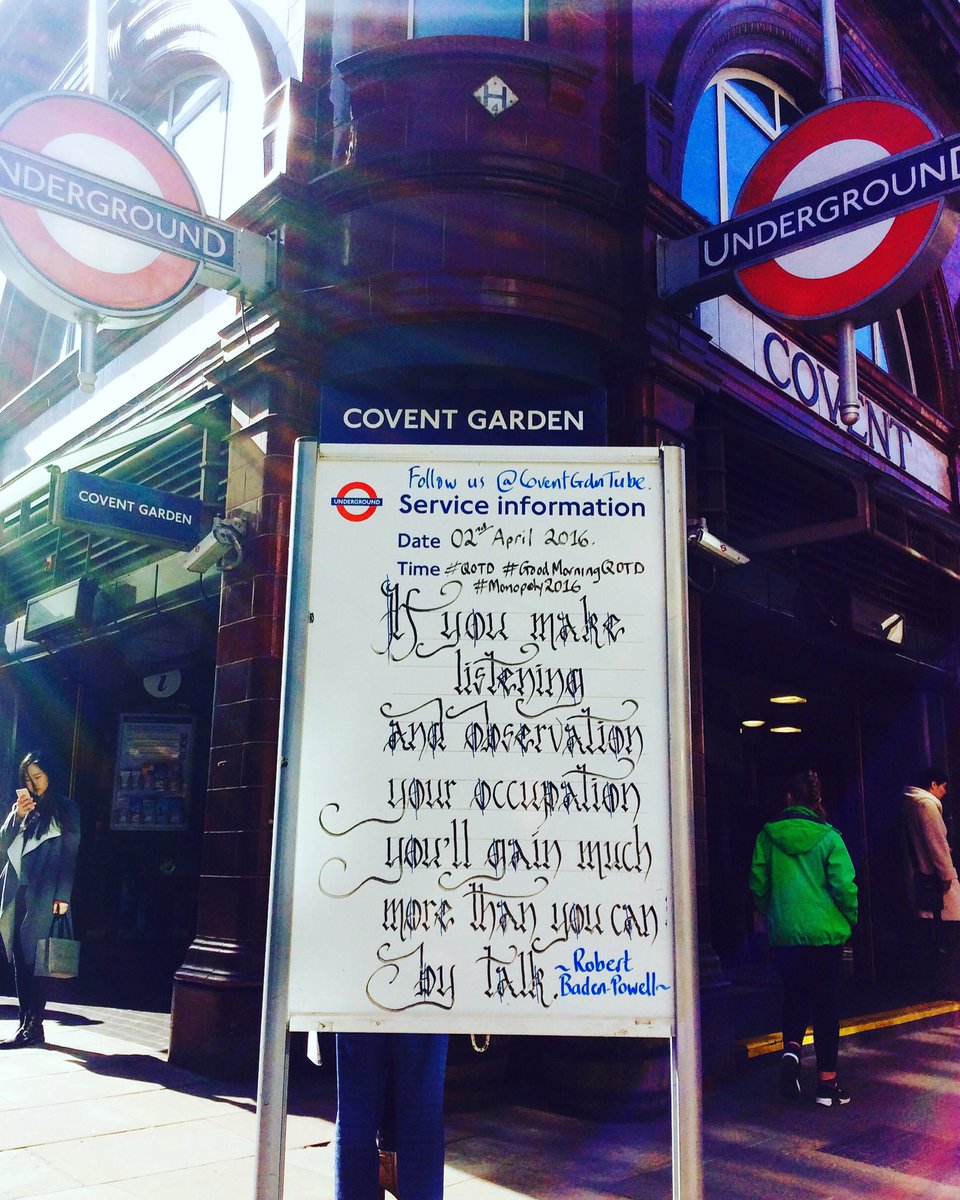 H
4
UNDERGROUND
UNDERGROUND
COVENT
COVENT GARDEN
COVENT GARDEN
Follow us @CoventGdnTube.
UNDERGROUND
Service information
Date 02nd April 2016.
Time #QOTD #GoodMorningQOTD
#Monopoly2016
If you make
listening
and observation
your occupation
you'll gain much
more than you can
by talk.
~Robert
Baden-Powell~
i